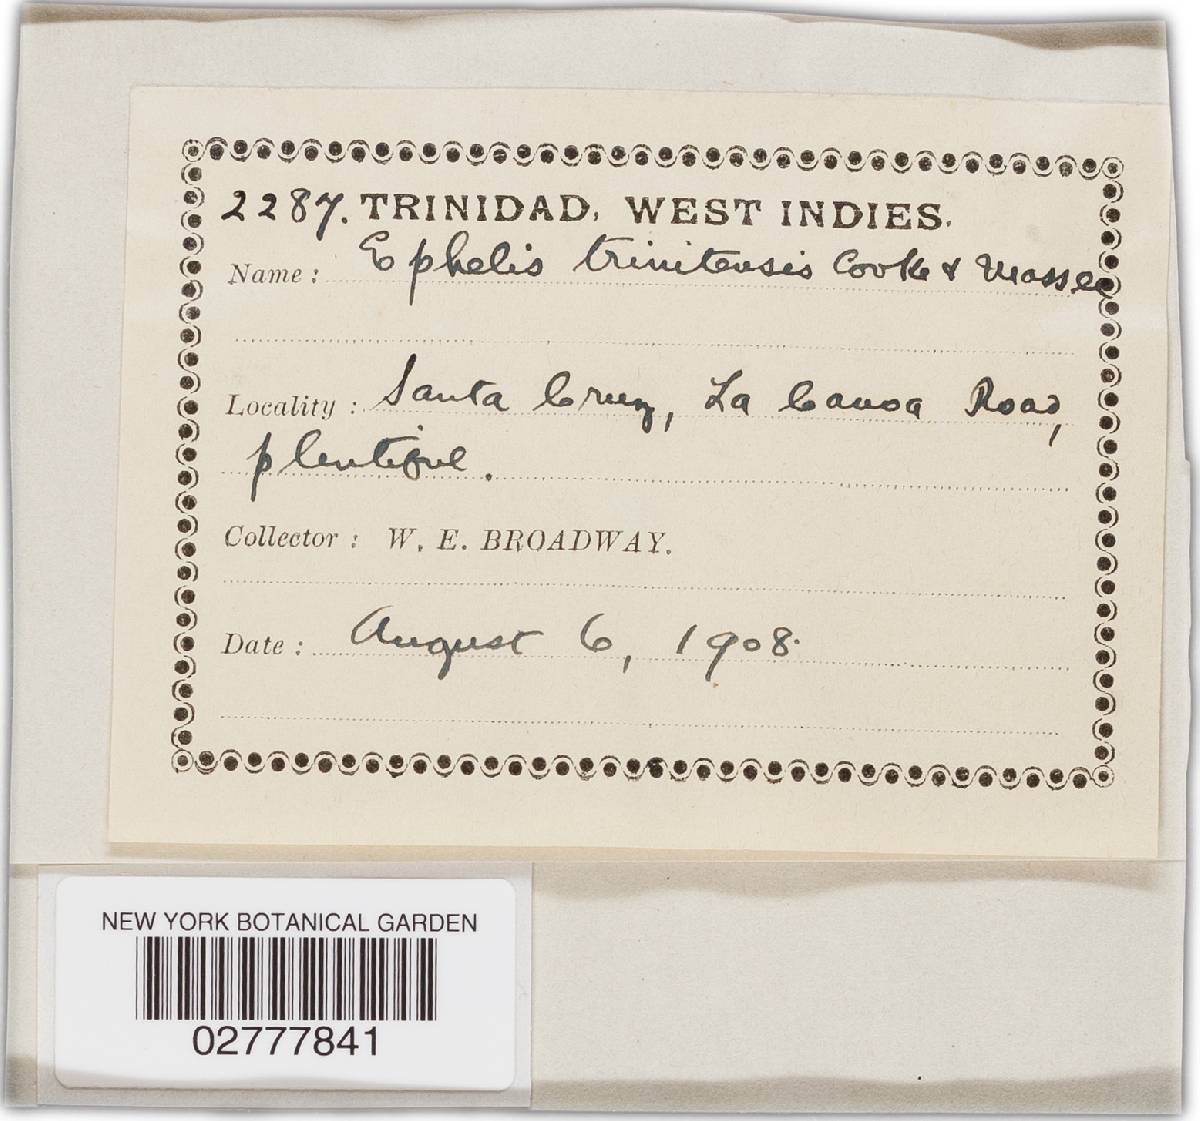 2287. TRINIDAD, WEST INDIES.
Name: Ephelis trinitensis Cooke & Massee
Locality: Santa Cruz, La Canoa Road,
plentiful.
Collector: W. E. BROADWAY.
Date: August 6, 1908.
NEW YORK BOTANICAL GARDEN
02777841